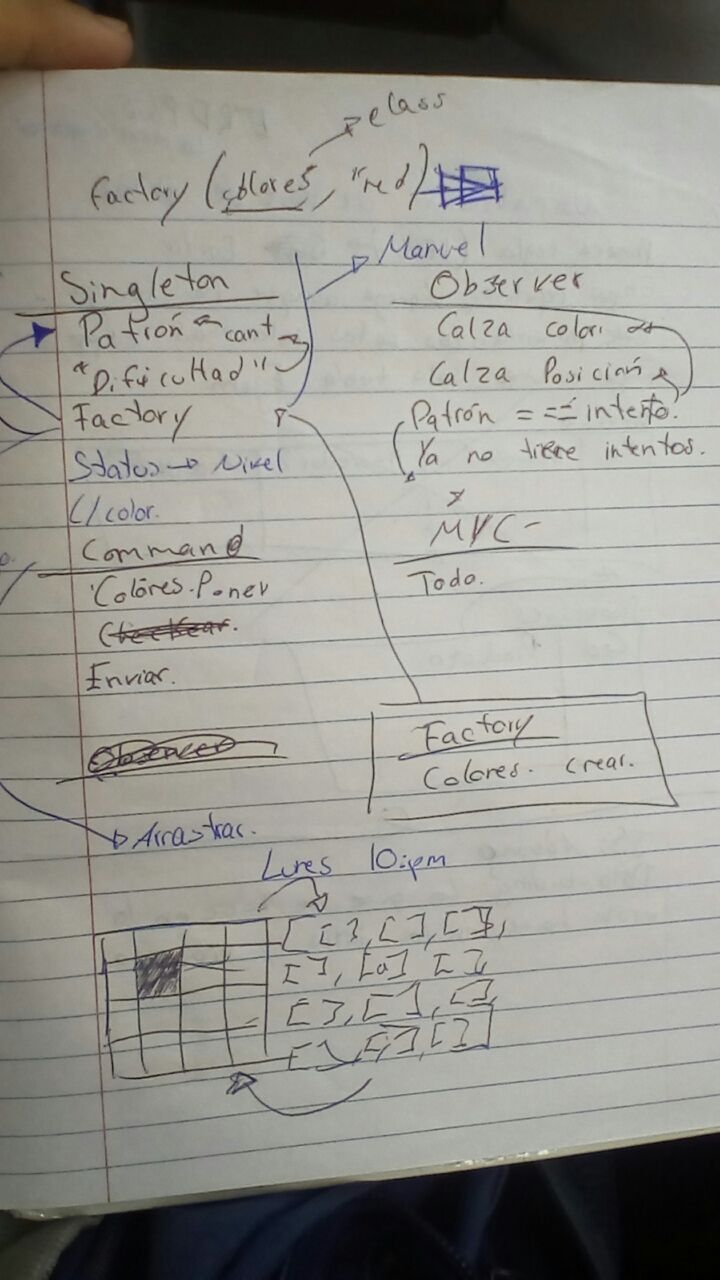 class
Factory (colores, "red)
Manuel
Singleton
Patrón "cant
"Dificultad"
Factory
Status → Nivel
C/color.
Command
Colores. Poner
Checkear.
Enviar.
Observer
Arrastrar.
Observer
Calza color.
Calza Posición
Patrón = == intento.
Ya no tiene intentos.
MVC-
Todo.
Factory
Colores. crear.
Lunes 10:pm
[ [ ], [ ], [ ],
[ ], [a] [ ],
[ ], [ ], [ ],
[ ], [ ], [ ]]